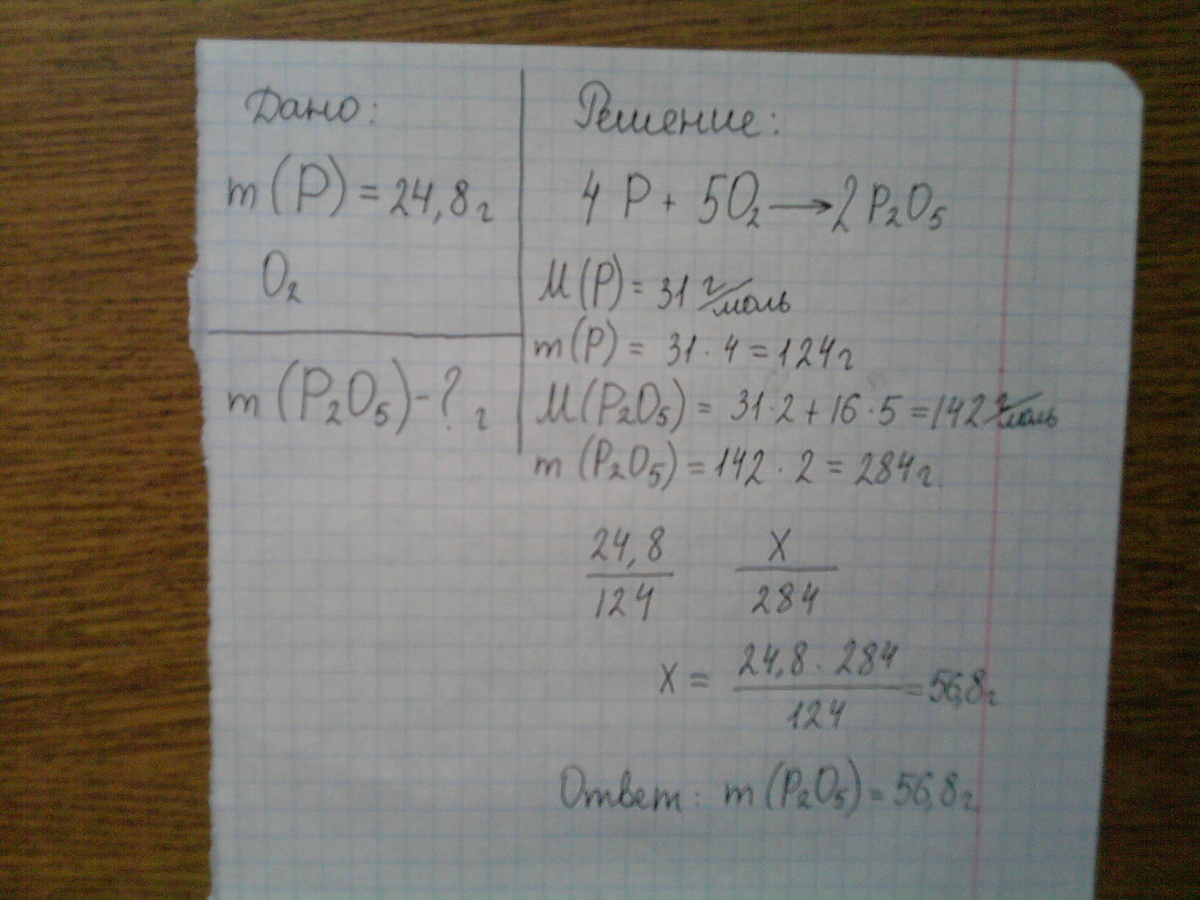 Дано:
m(P) = 24,8 г
O₂
m(P₂O₅) - ? г
Решение:
4 P + 5O₂ → 2 P₂O₅
M(P) = 31 г/моль
m(P) = 31 · 4 = 124 г
M(P₂O₅) = 31·2 + 16·5 = 142 г/моль
m(P₂O₅) = 142 · 2 = 284 г.
24,8 X
124 284
X = 24,8 · 284 / 124 = 56,8 г
Ответ: m(P₂O₅) = 56,8 г.